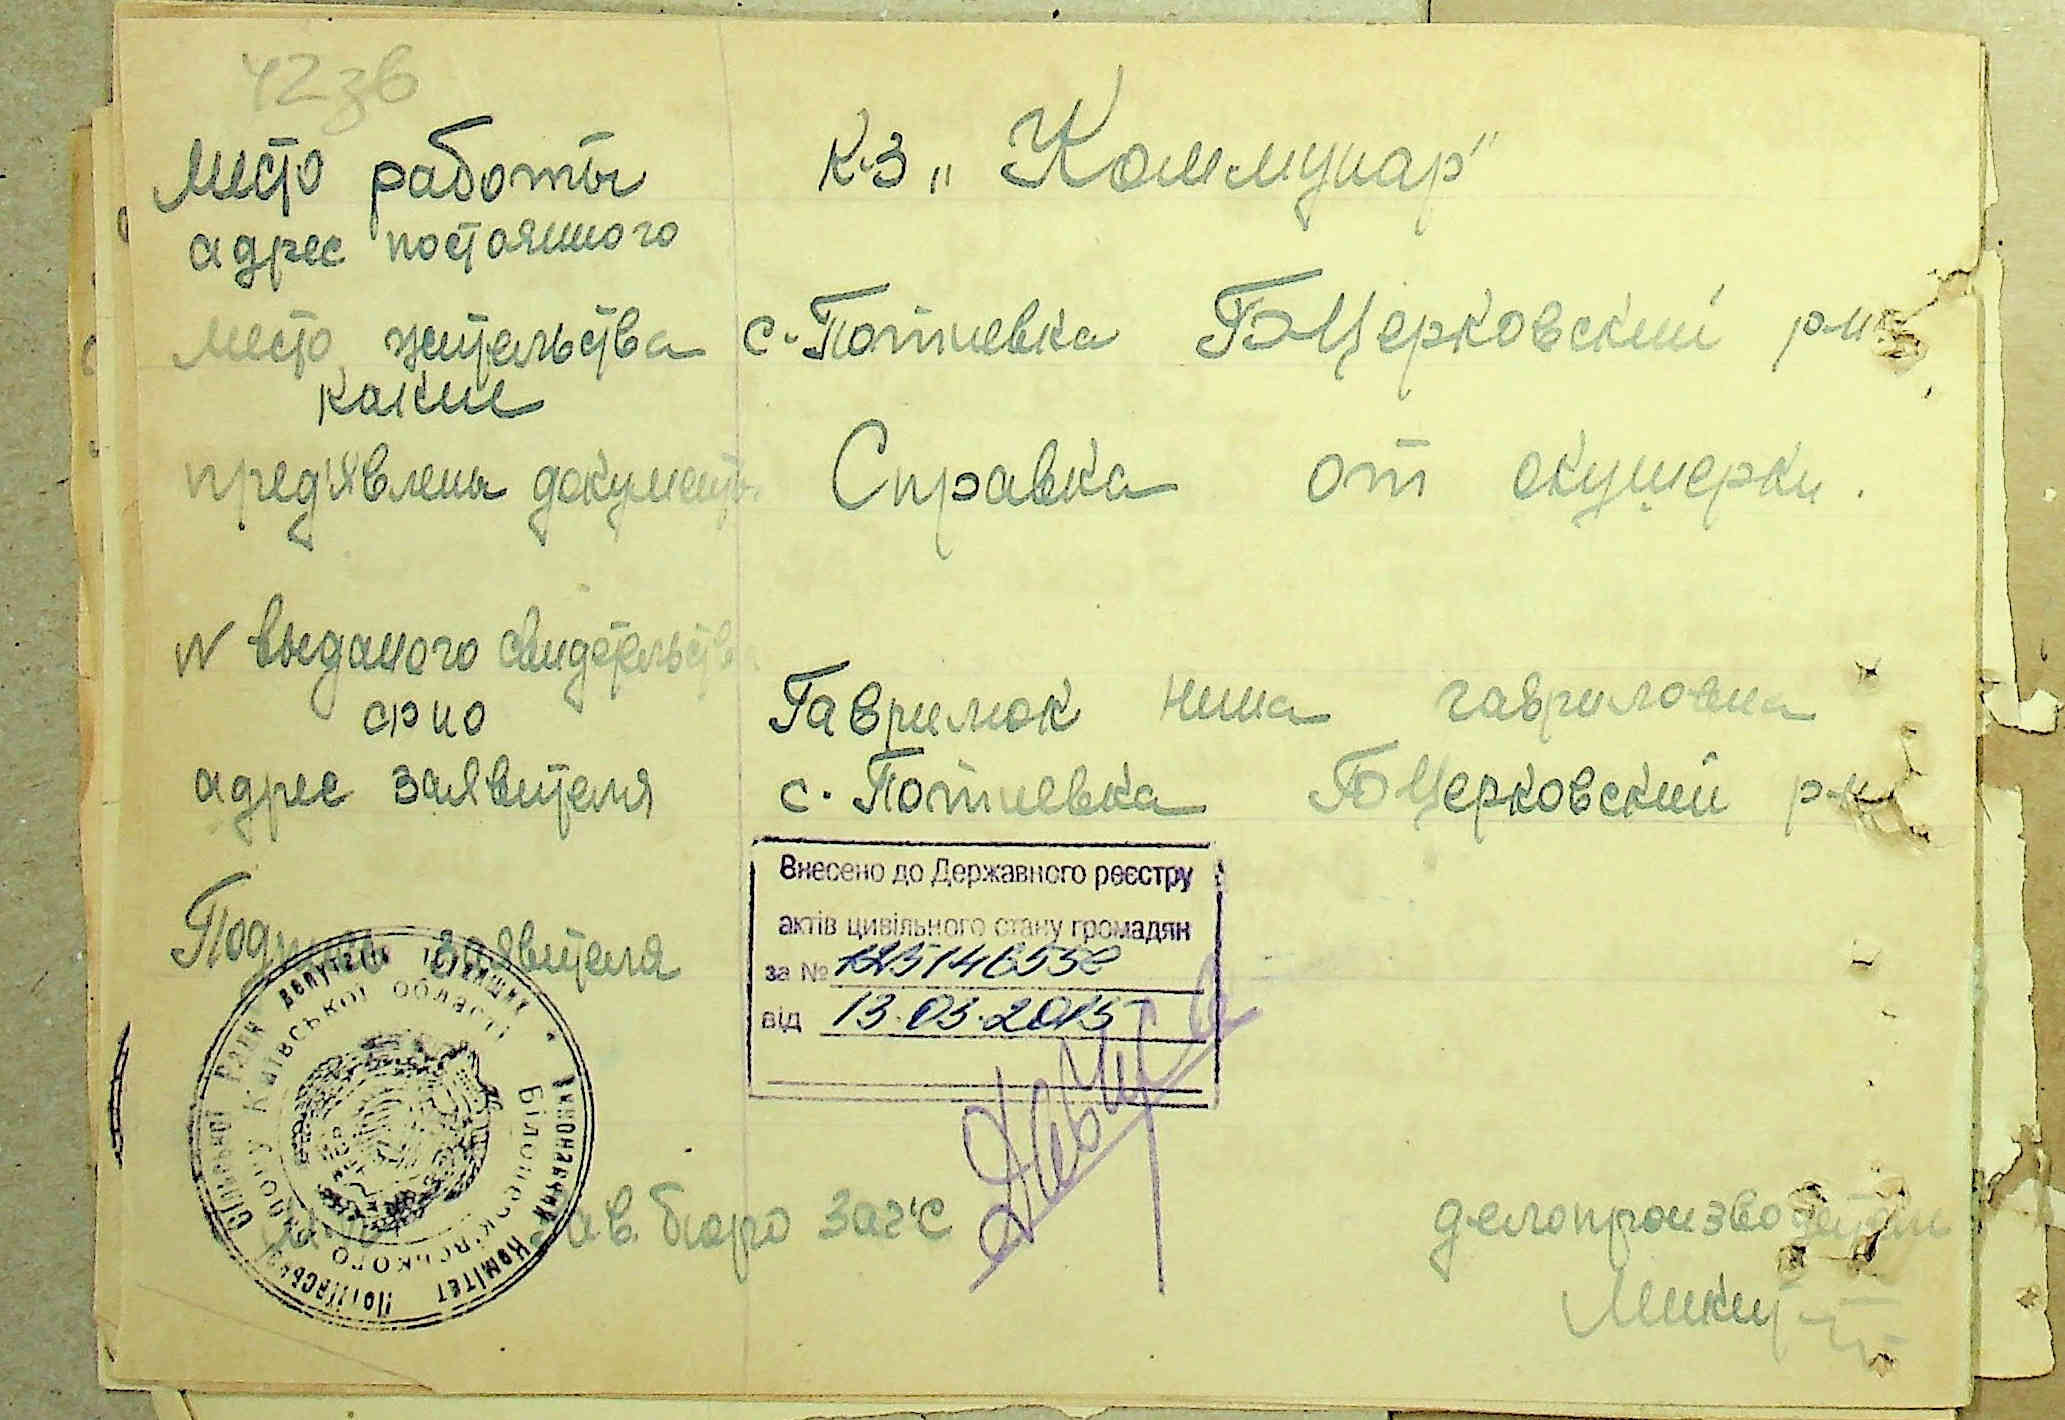 место работы к-з „Коммунар"
адрес постоянного
место жительства с. Потиевка БЦерковский р-н
какие
предъявлены документы Справка от акушерки.
N выданого свидетельства
фио Гаврилюк нина гавриловна
адрес заявителя с. Потиевка БЦерковский р-н
Внесено до Державного реєстру
актів цивільного стану громадян
Подпись заявителя
за №
від 13.03.2015
Виконавчий Комітет Потіївської сільської Ради депутатів трудящих
Білоцерківського району Київської області
Зав. бюро загс делопроизводитель